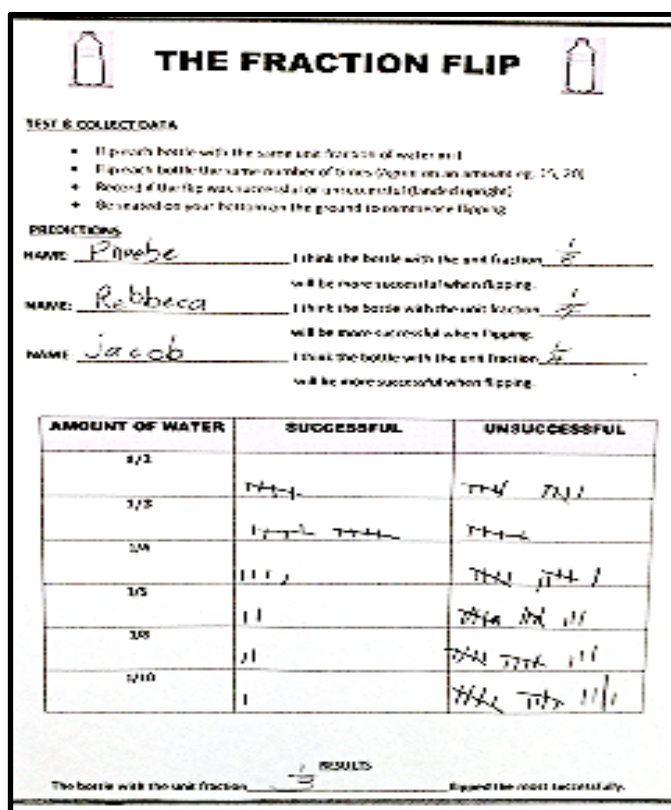 THE FRACTION FLIP
TEST & COLLECT DATA
Flip each bottle with the same unit fraction of water in it
Flip each bottle the same number of times (Agree on an amount eg. 15, 20)
Record if the flip was successful or unsuccessful (landed upright)
Be seated on your bottom on the ground to commence flipping
PREDICTIONS
NAME: Phoebe I think the bottle with the unit fraction
will be more successful when flipping.
NAME: Rebbeca I think the bottle with the unit fraction
will be more successful when flipping.
NAME: jacob I think the bottle with the unit fraction 1/4
will be more successful when flipping.
AMOUNT OF WATER SUCCESSFUL UNSUCCESSFUL
1/2
1/3
1/4
1/5
1/8
1/10
RESULTS
The bottle with the unit fraction 1/3 flipped the most successfully.